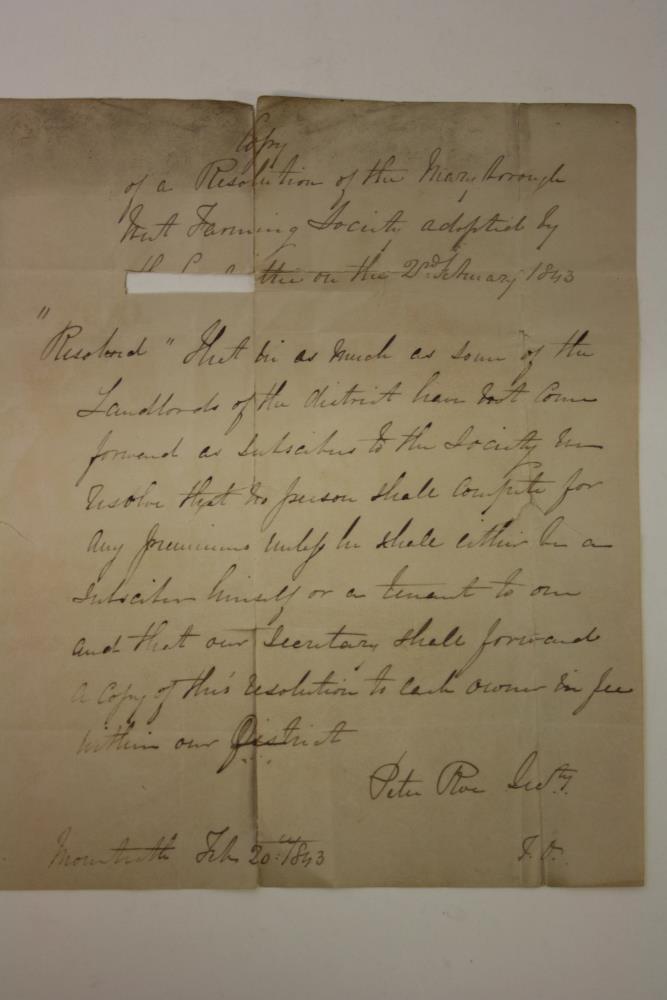 Copy
of a Resolution of the Maryborough
West Farming Society adopted by
the Committee on the 2nd February 1843
"Resolved" That in as much as some of the
Landlords of the district have not come
forward as subscribers to the Society We
resolve that no person shall compete for
any premiums unless he shall either be a
Subscriber himself or a tenant to one
and that our Secretary shall forward
a copy of this resolution to each owner in fee
within our District
Peter Roe Secty.
Mountrath Feb 20th 1843